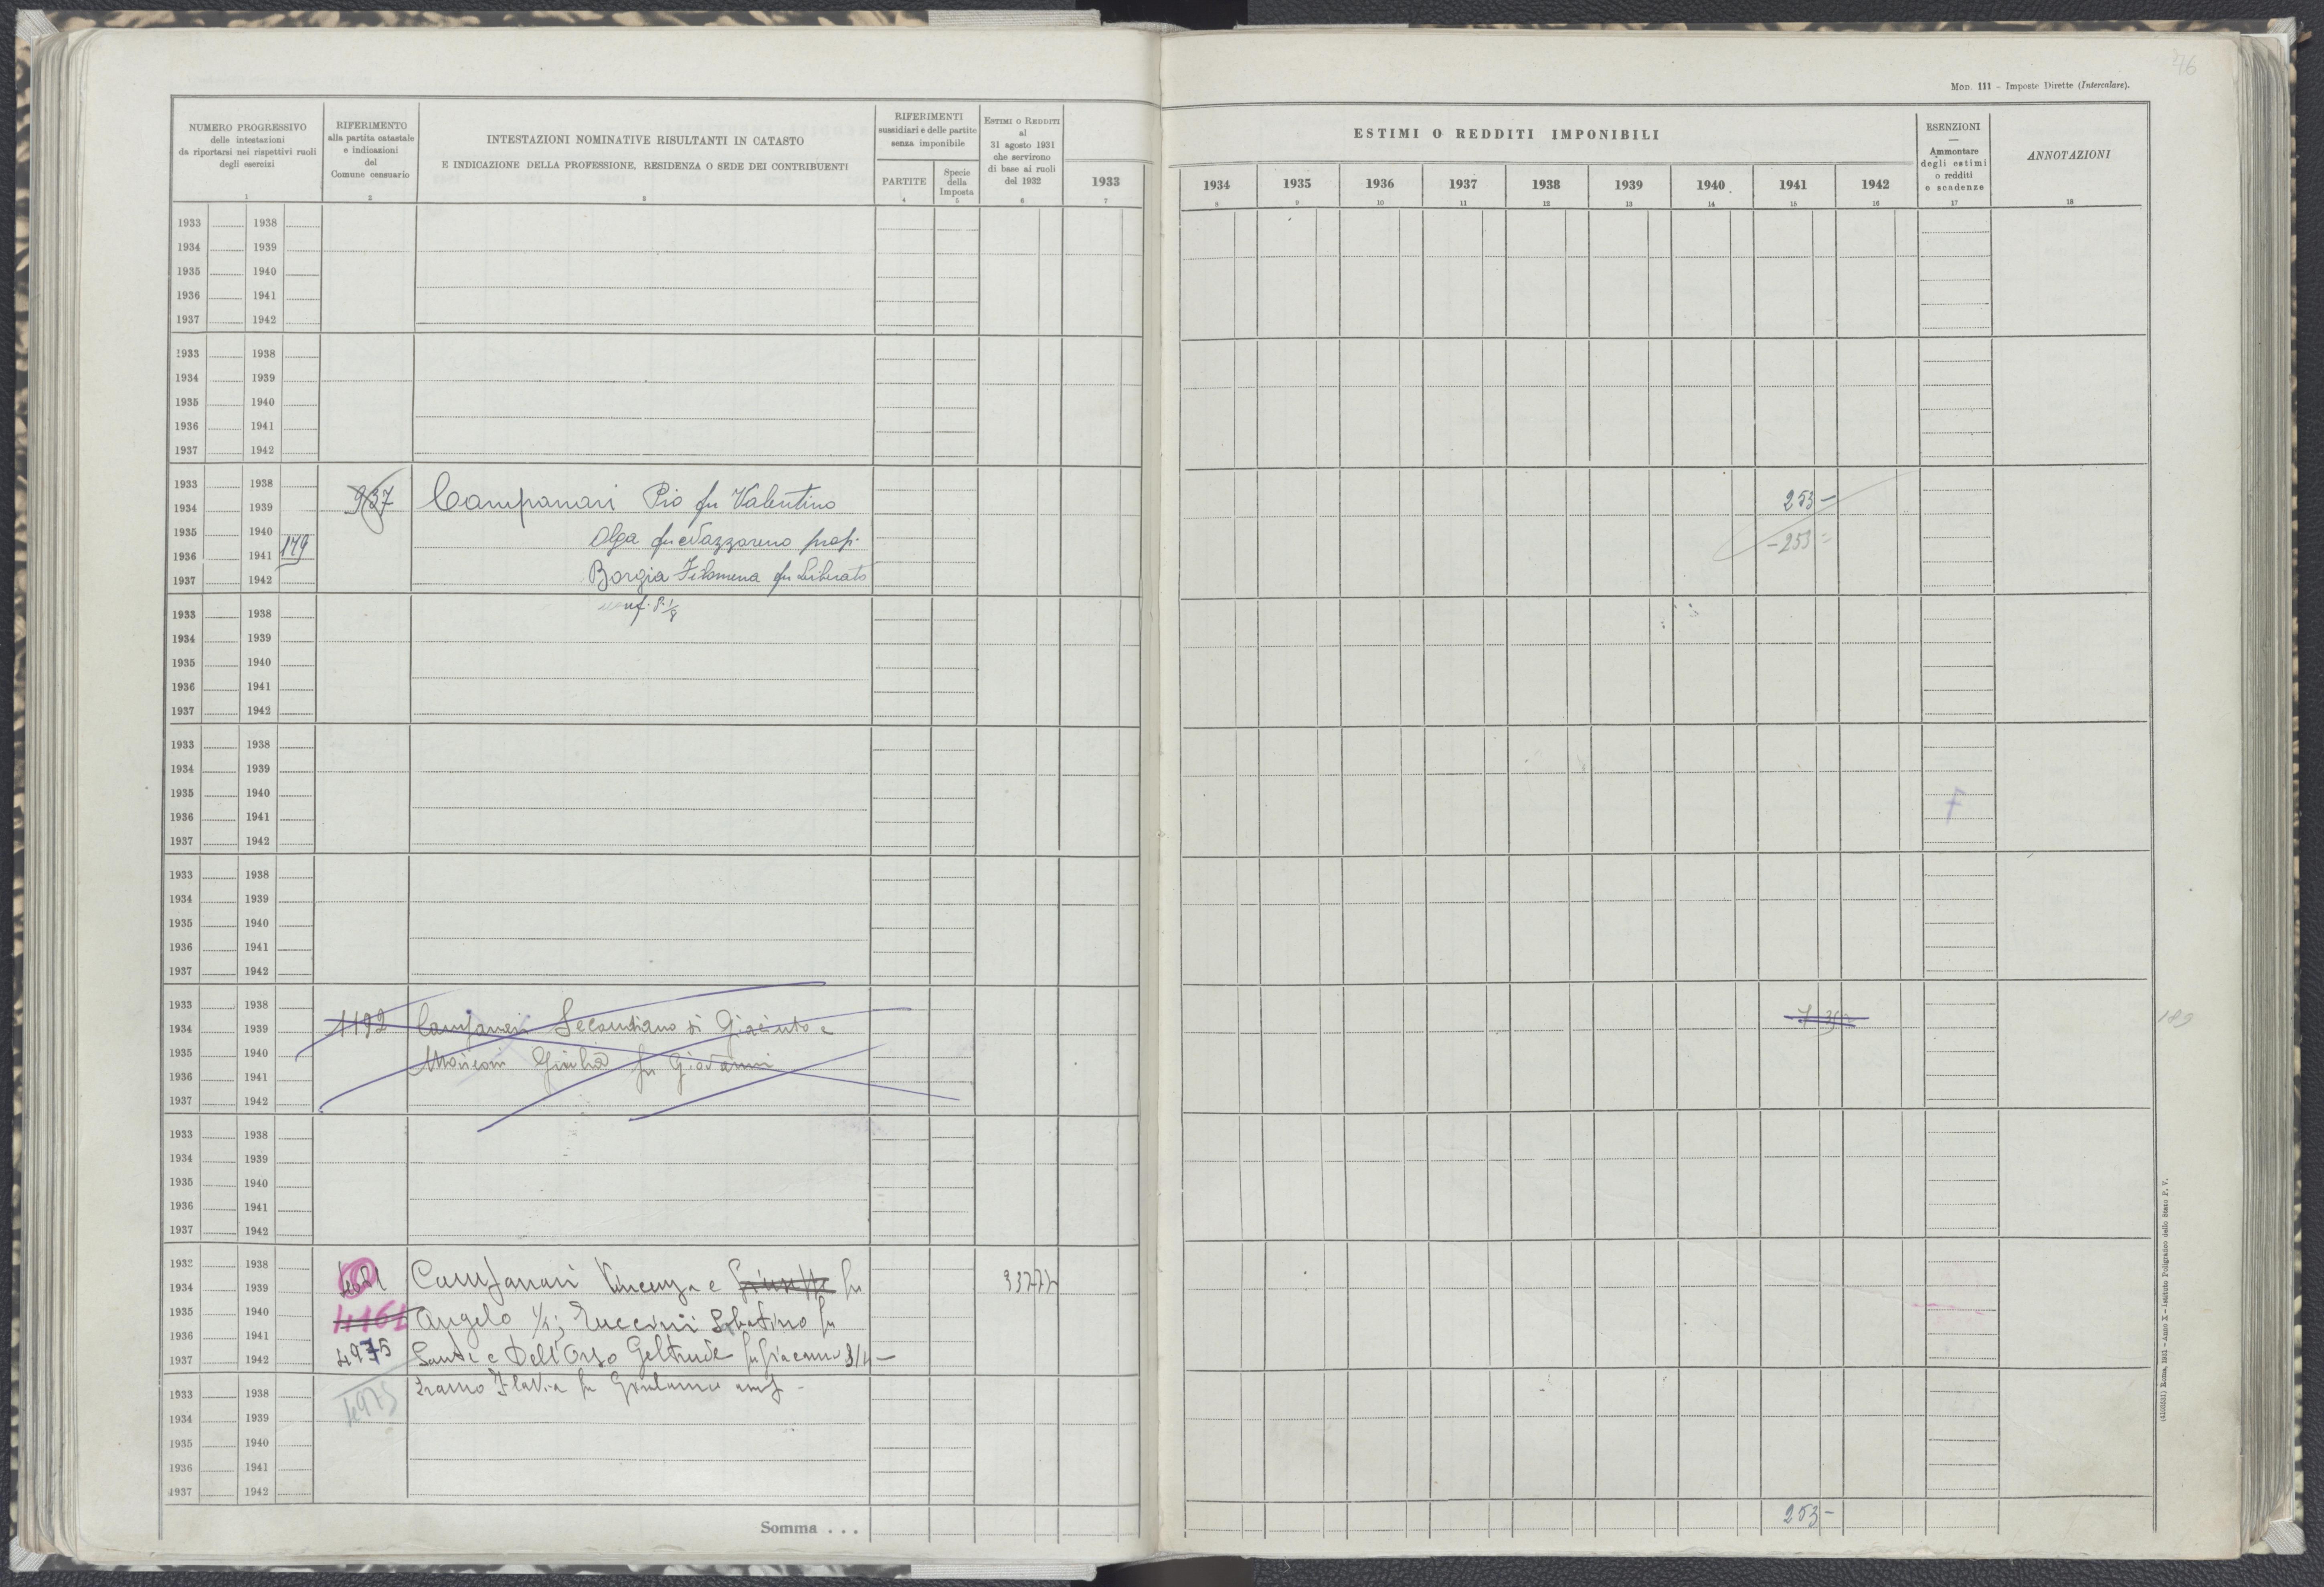 76
Mod. 111 - Imposte Dirette (Intercalare).
NUMERO PROGRESSIVO
delle intestazioni
da riportarsi nei rispettivi ruoli
degli esercizi
1
RIFERIMENTO
alla partita catastale
e indicazioni
del
Comune censuario
2
INTESTAZIONI NOMINATIVE RISULTANTI IN CATASTO
E INDICAZIONE DELLA PROFESSIONE, RESIDENZA O SEDE DEI CONTRIBUENTI
3
RIFERIMENTI
sussidiari e delle partite
senza imponibile
PARTITE
4
Specie
della
Imposta
5
ESTIMI O REDDITI
al
31 agosto 1931
che servirono
di base ai ruoli
del 1932
6
1933
7
ESTIMI O REDDITI IMPONIBILI
1934 1935 1936 1937 1938 1939 1940 1941 1942
8 9 10 11 12 13 14 15 16
ESENZIONI
—
Ammontare
degli estimi
o redditi
e scadenze
17
ANNOTAZIONI
18
1933 1938
1934 1939
1935 1940
1936 1941
1937 1942
1933 1938
1934 1939
1935 1940
1936 1941
1937 1942
1933 1938
1934 1939 937 Campanari Pio fu Valentino 253-
1935 1940 Olga fu Nazzareno prop. -253=
1936 1941 179
1937 1942 Borgia Filomena fu Liberato
uf. P. 1/8
1933 1938
1934 1939
1935 1940
1936 1941
1937 1942
1933 1938
1934 1939
1935 1940
1936 1941
1937 1942
7
1933 1938
1934 1939
1935 1940
1936 1941
1937 1942
1933 1938
1934 1939 1192 Campanari Secondiano di Giacinto e
1935 1940 Giulia fu Giovanni
1936 1941
1937 1942
189
1933 1938
1934 1939
1935 1940
1936 1941
1937 1942
1932 1938
1934 1939 Campanari Vincenza e Giuseppe fu
1935 1940 4161 Angelo 1/4; Tuccini Sabatino fu
1936 1941
1937 1942 4975 Sante e Dell'Orso Geltrude fu Giacomo 3/4 -
4975 Flavia fu Girolamo usuf -
1933 1938
1934 1939
1935 1940
1936 1941
1937 1942
Somma . . . 253-
(4103551) Roma, 1931 - Anno X - Istituto Poligrafico dello Stato P. V.